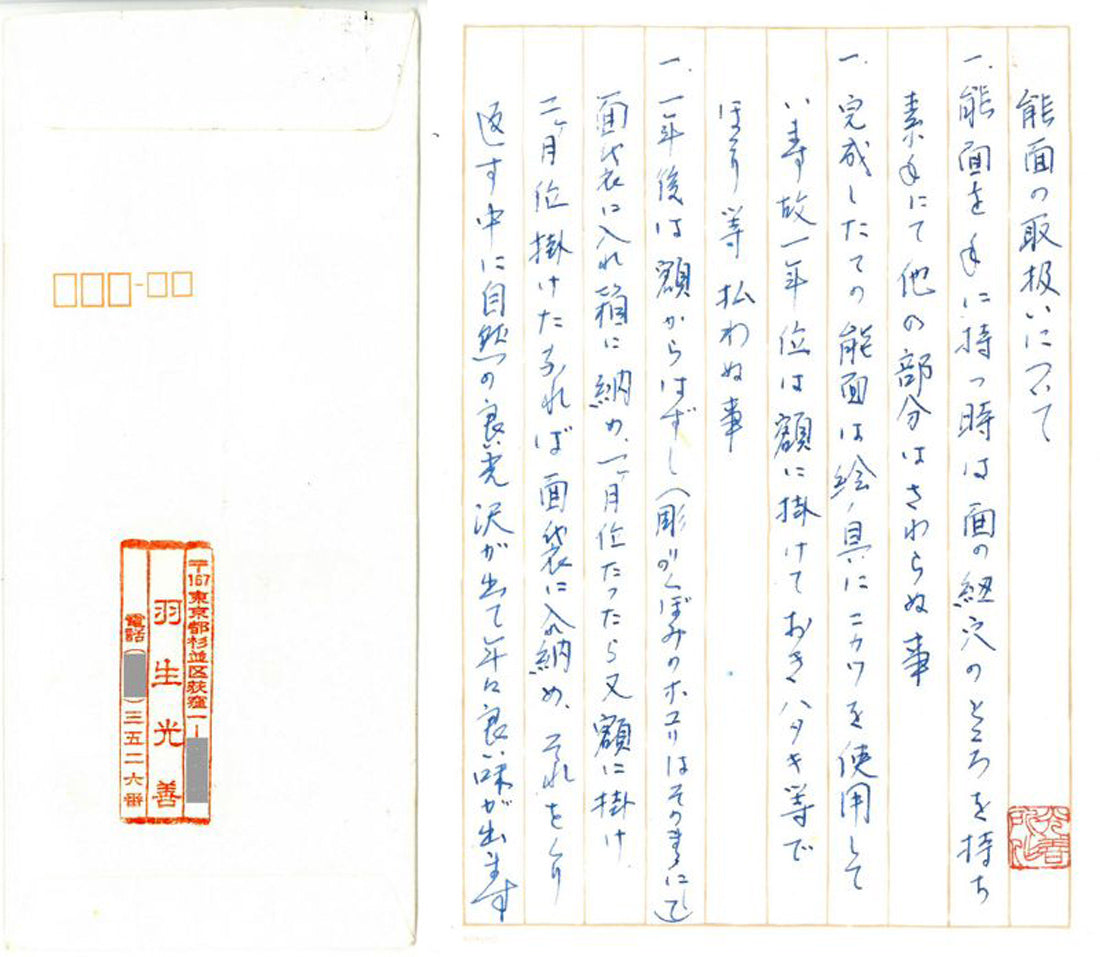 能面の取扱いについて
一、能面を手に持つ時は面の紐穴のところを持ち
素手にて他の部分はさわらぬ事
一、完成したての能面は絵ノ具にニカワを使用して
います故一年位は額に掛けておきハタキ等で
ほこり等払わぬ事
一、一年後は額からはずし(彫りのくぼみのホコリはそのまゝにて)
面袋に入れ箱に納め、一ヶ月位たったら又額に掛け
二ヶ月位掛けたなれば面袋に入れ納め、それをくり
返す中に自然の良い光沢が出て年に良い味が出ます
〒167東京都杉並区荻窪一ー
羽生光善
電話()三五二六番